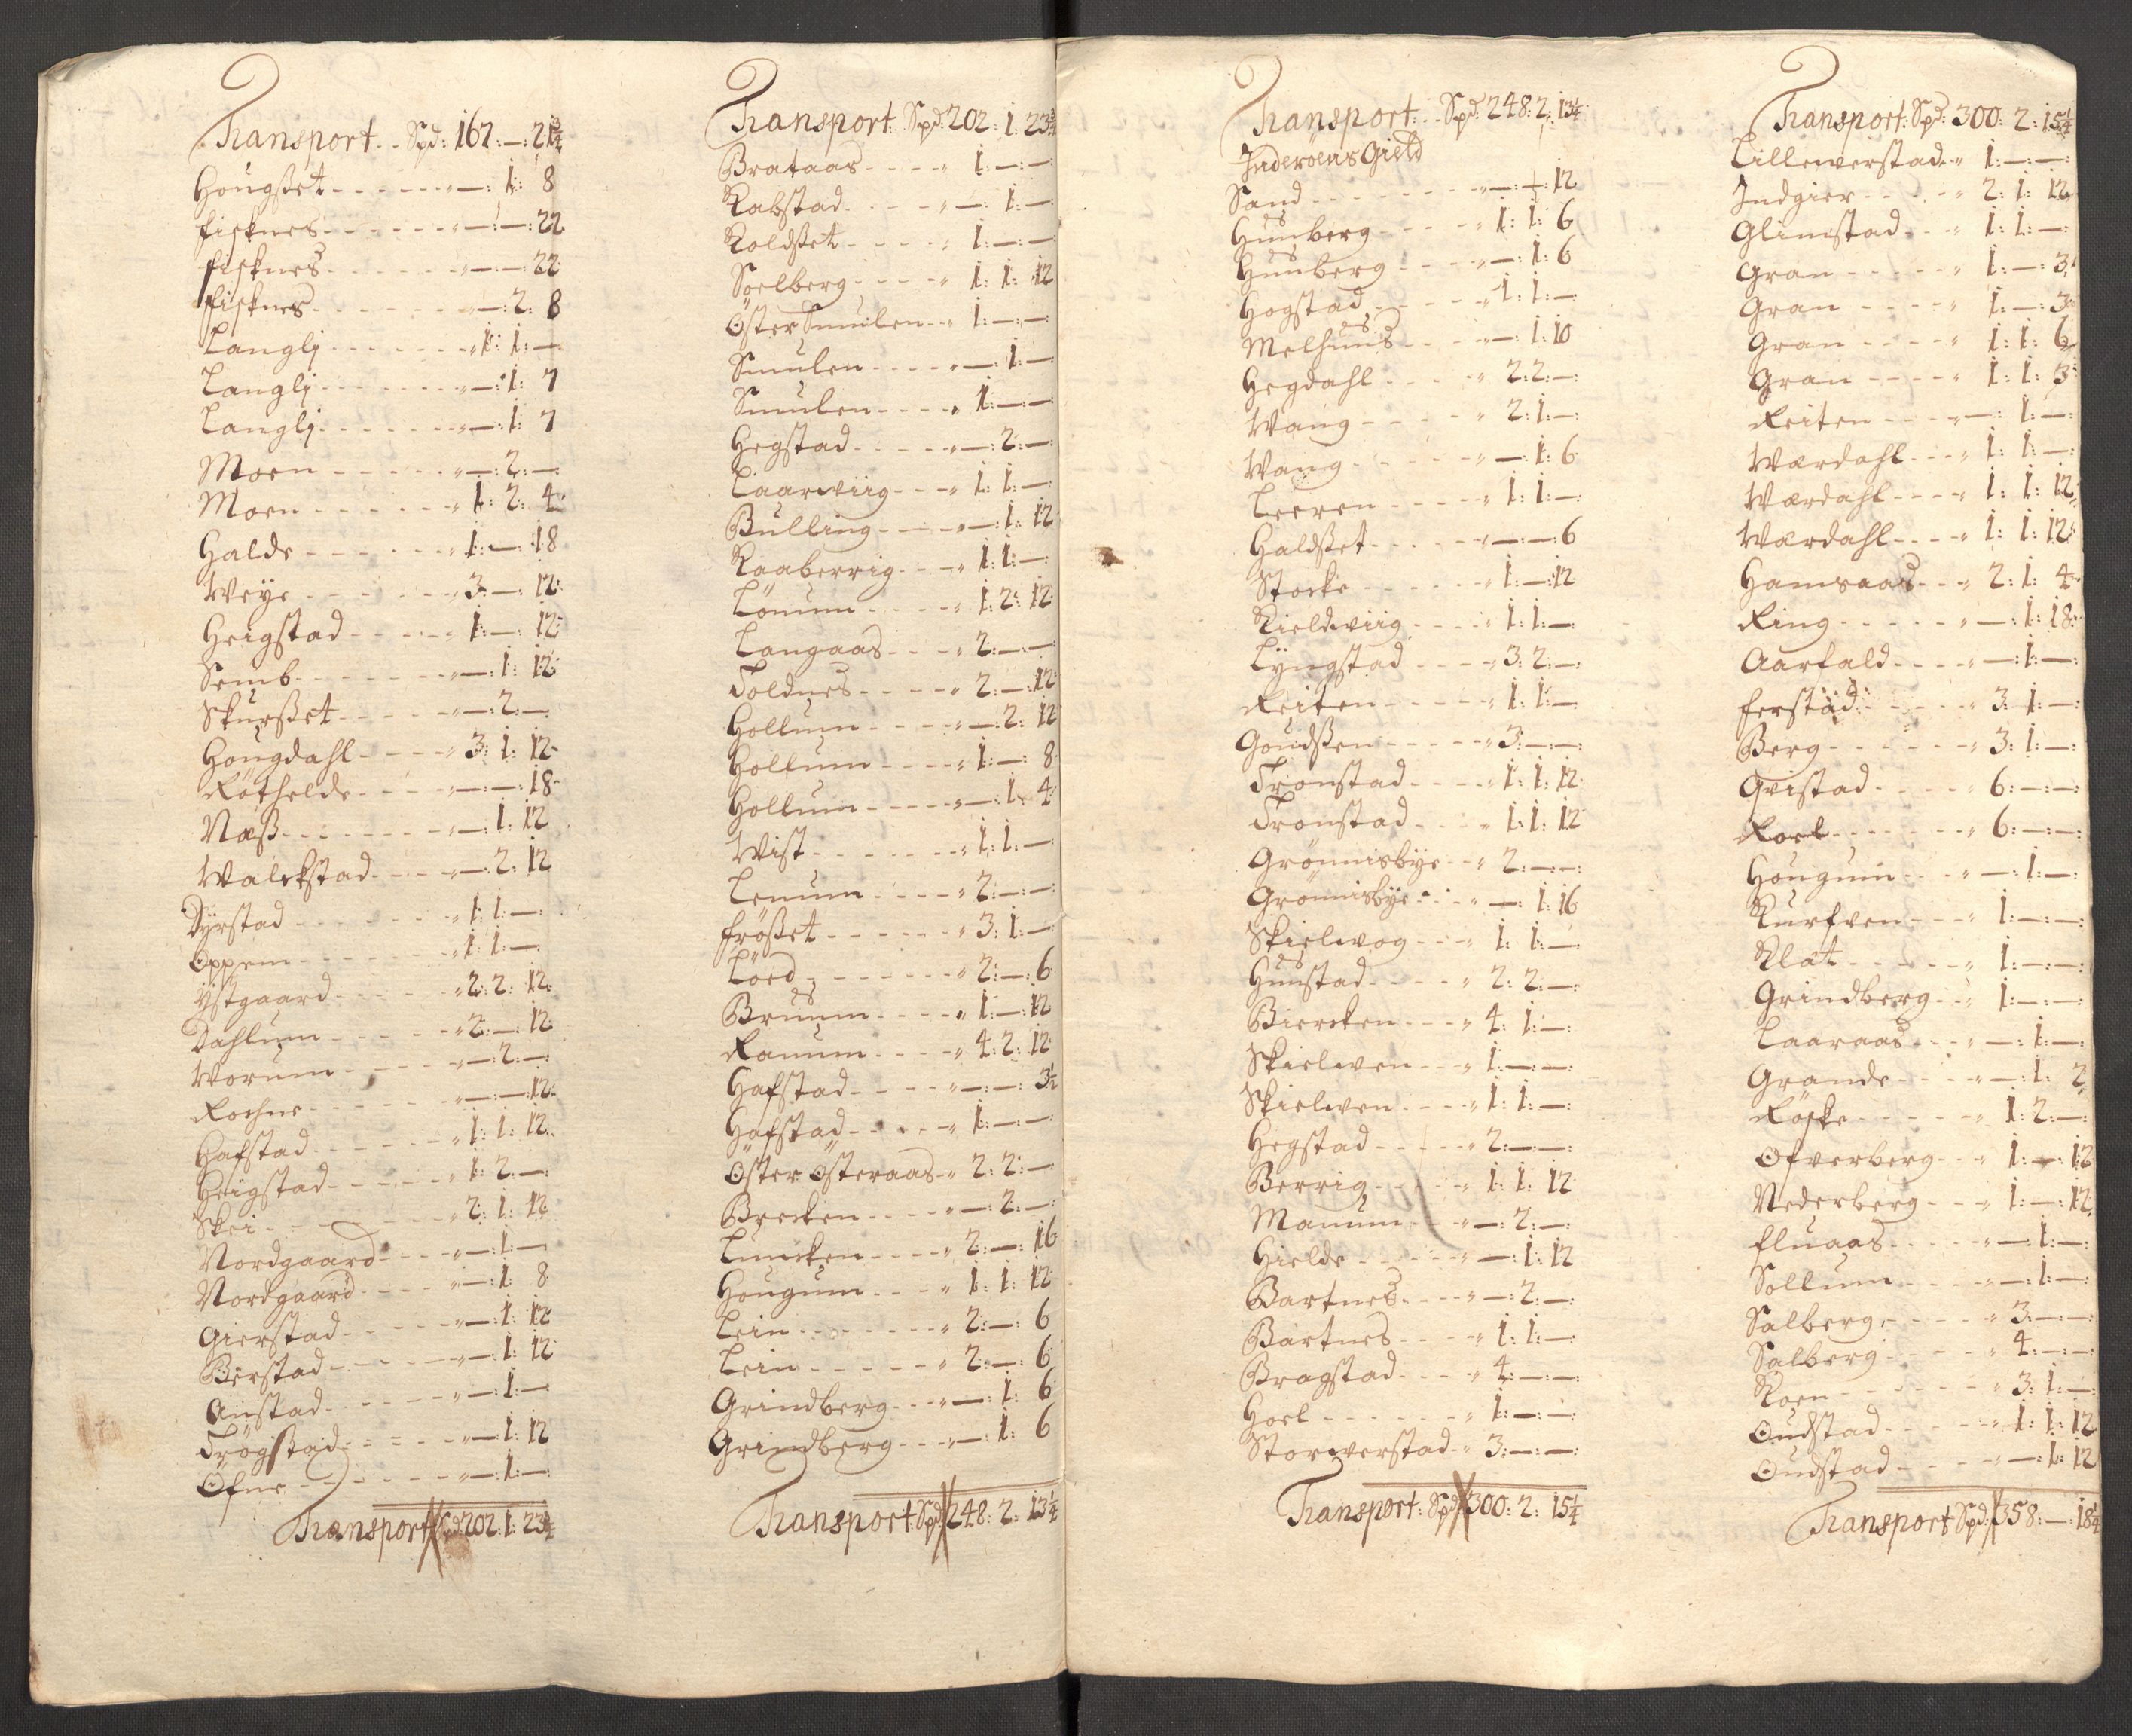 Transport - - Spd: 167 : — : 21¾
Hougßet - - - - - - „ — : 1 : 8
Fisknes - - - - - - „ — : — : 22
Fisknes - - - - - - „ — : — : 22
Fisknes - - - - - - „ — : 2 : 8
Langlj - - - - - - „ 1 : 1 : —
Langlj - - - - - - „ — : 1 : 7
Langlj - - - - - - „ — : 1 : 7
Moen - - - - - - „ — : 2 : —
Moen - - - - - - „ 1 : 2 : 4
Halde - - - - - - „ 1 : — : 18
Weye - - - - - - „ 3 : — : 12
Heigstad - - - - - „ 1 : — : 12
Semb - - - - - - „ — : 1 : 12
Skurßet - - - - - „ — : 2 : —
Hougdahl - - - - „ 3 : 1 : 12
Røthelde - - - - „ — : — : 18
Næß - - - - - - „ — : 1 : 12
Walckstad - - - - „ — : 2 : 12
Dyrstad - - - - - - „ 1 : 1 : —
Oppem - - - - - - „ 1 : 1 : —
Ystgaard - - - - - „ 2 : 2 : 12
Dahlum - - - - - „ 2 : — : 12
Worum - - - - - „ — : 2 : —
Rochne - - - - - „ — : — : 12
Hafstad - - - - - „ 1 : 1 : 12
Heigstad - - - - - „ 1 : 2 : —
Skei - - - - - - „ 2 : 1 : 12
Nordgaard - - - „ — : 1 : —
Nordgaard - - - - „ — : 1 : 8
Gierstad - - - - - „ — : 1 : 12
Berstad - - - - - „ — : 1 : 12
Anstad - - - - - „ — : 1 : —
Trøgstad - - - - - „ — : 1 : 12
Øfne - - - - - - „ — : 1 : —
Transport Spd: 202 : 1 : 23¾
Transport Spd: 202 : 1 : 23¾
Brataas - - - - „ 1 : — : —
Rabstad - - - - - „ — : 1 : —
Koldßet - - - - „ 1 : — : —
Soelberg - - - - „ 1 : 1 : 12
Øster Smulen - - „ 1 : — : —
Smulen - - - - „ — : 1 : —
Smulen - - - - „ 1 : — : —
Hegstad - - - - - „ — : 2 : —
Laarwiig - - - „ 1 : 1 : —
Bulling - - - - „ — : 1 : 12
Kaaberrig - - - „ 1 : 1 : —
Lønum - - - - „ 1 : 2 : 12
Langaas - - - „ 2 : — : —
Toldnes - - - - „ 2 : — : 12
Hollum - - - - „ — : 2 : 12
Hollum - - - - „ 1 : — : 8
Hollum - - - - „ — : 1 : 4
Wist - - - - - - „ 1 : 1 : —
Lenum - - - - „ 2 : — : —
Frøßet - - - - - „ 3 : 1 : —
Loed - - - - - - „ 2 : — : 6
Bruum - - - - „ 1 : — : 12
Ranum - - - - „ 4 : 2 : 12
Hafstad - - - - „ — : — : 3½
Hafstad - - - - „ 1 : — : —
Øster Østeraas - „ 2 : 2 : —
Brecken - - - - „ — : 2 : —
Luncken - - - - „ 2 : — : 16
Hougum - - - - „ 1 : 1 : 12
Lein - - - - - - „ 2 : — : 6
Lein - - - - - - „ 2 : — : 6
Grindberg - - - „ — : 1 : 6
Grindberg - - - „ — : 1 : 6
Transport: Spd: 248 : 2 : 13¼
Transport: - Spd: 248 : 2 : 13¼
Inderøens Gield
Sand - - - - - - „ — : 1 : 12
Husberg - - - - - „ 1 : 1 : 6
Husberg - - - - „ — : 1 : 6
Hogstad - - - - - „ 1 : 1 : —
Melhuus - - - - „ — : 1 : 10
Hegdahl - - - - „ 2 : 2 : —
Wang - - - - - „ 2 : 1 : —
Wang - - - - - „ — : 1 : 6
Leeren - - - - - „ 1 : 1 : —
Haldßet - - - - - „ — : — : 6
Stocke - - - - - - „ 1 : — : 12
Kieldwiig - - - - „ 1 : 1 : —
Lyngstad - - - - „ 3 : 2 : —
Reiten - - - - - „ 1 : 1 : —
Goudßen - - - - - „ 3 : — : —
Tronstad - - - - „ 1 : 1 : 12
Tronstad - - - - „ 1 : 1 : 12
Grønnisbye - - „ 2 : — : —
Grønnisbye - - - „ — : 1 : 16
Skielwog - - - „ 1 : 1 : —
Huustad - - - - „ 2 : 2 : —
Biercken - - - „ 4 : 1 : —
Skielwen - - - „ 1 : — : —
Skielwen - - - - „ 1 : 1 : —
Hegstad - - - - - „ 2 : — : —
Berrig - - - - - „ 1 : 1 : 12
Manum - - - „ — : 2 : —
Hielde - - - - - „ — : 1 : 12
Bartnes - - - - „ — : 2 : —
Bartnes - - - - „ 1 : 1 : —
Bragstad - - - - „ 4 : — : —
Hoel - - - - - - „ 1 : — : —
Storwerstad - „ 3 : — : —
Transport: Spd: 300 : 2 : 15¼
Transport: Spd: 300 : 2 : 15¼
Lillewerstad - „ 1 : — : —
Indgier - - - - „ 2 : 1 : 12
Glimstad - - - „ 1 : 1 : —
Gran - - - - - „ 1 : — : 3
Gran - - - - - „ 1 : — : 3
Gran - - - - - „ 1 : 1 : 6
Gran - - - - - „ 1 : 1 : 3
Reiten - - - - „ — : 1 : —
Wærdahl - - - „ 1 : 1 : —
Wærdahl - - - - „ 1 : 1 : 12
Wærdahl - - - - „ 1 : 1 : 12
Hamraas - - - „ 2 : 1 : 4
Ring - - - - - - „ — : 1 : 18
Aarfald - - - - „ — : 1 : —
Ferstad - - - - - „ 3 : 1 : —
Berg - - - - - - „ 3 : 1 : —
Qvistad - - - - - „ 6 : — : —
Roel - - - - - - „ 6 : — : —
Hougum - - - „ — : 1 : —
Kurfven - - - „ 1 : — : —
Klat - - - - - - „ 1 : — : —
Grindberg - - „ 1 : — : —
Laaraas - - - „ — : 1 : —
Grande - - - - „ — : 1 : 2
Røske - - - - - „ 1 : 2 : —
Ofverberg - - - „ 1 : — : 12
Nederberg - - - „ 1 : — : 12
Fluaas - - - - - „ — : 1 : —
Sollum - - - - - „ — : 1 : —
Salberg - - - - - „ 3 : — : —
Salberg - - - - - „ 4 : — : —
Koen - - - - - - „ 3 : 1 : —
Oudstad - - - - - „ 1 : 1 : 12
Oudstad - - - - „ — : 1 : 12
Transport Spd: 358 : — : 18¼